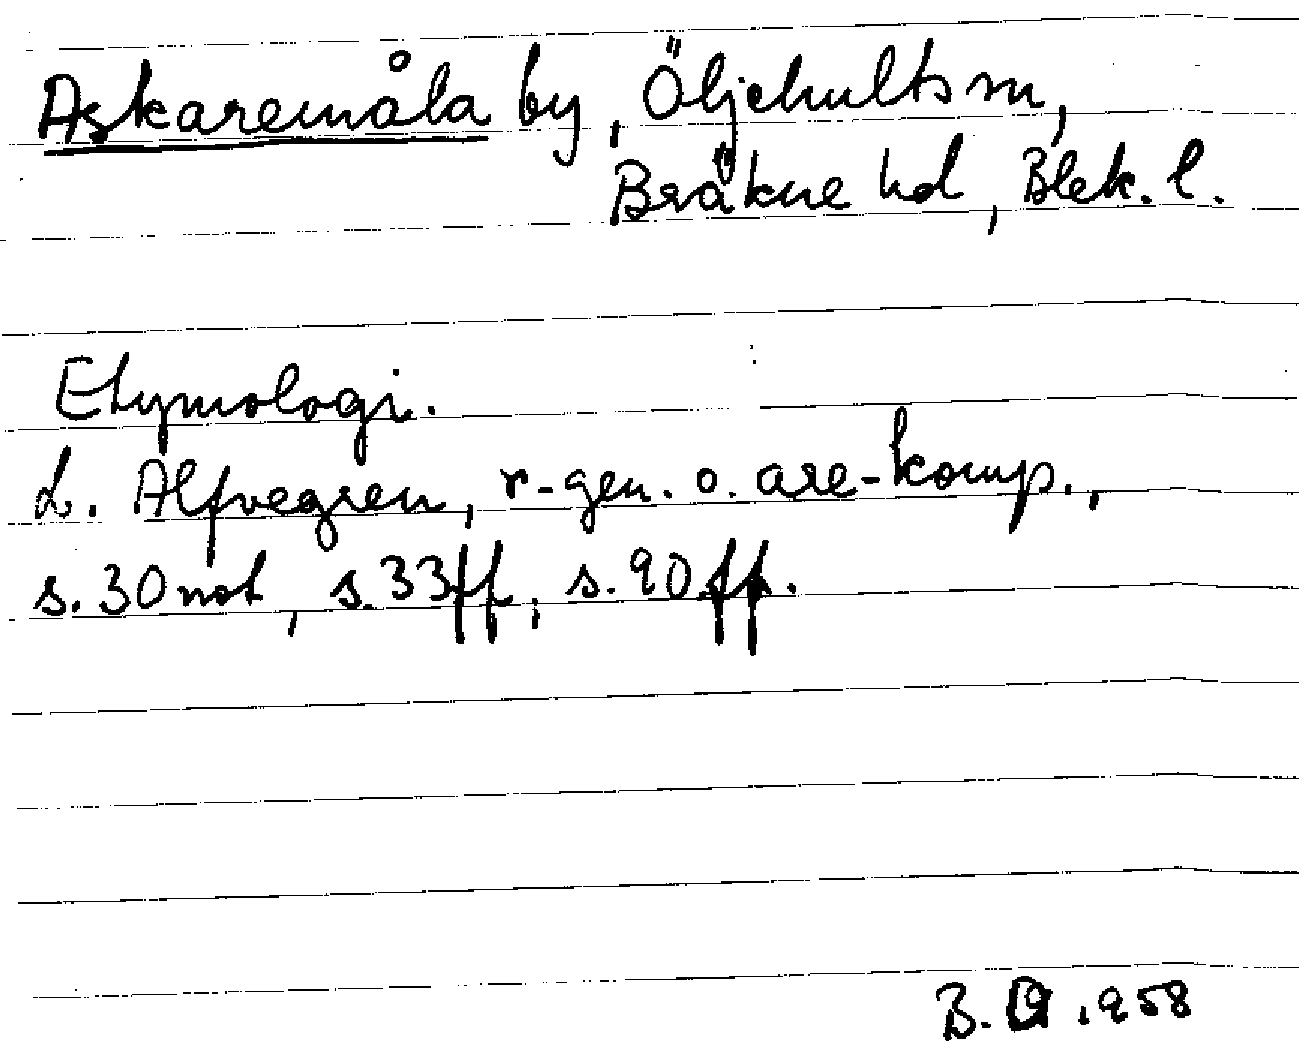 Askaremåla by, Öljehults sn,
Bräkne hd, Blek. l.
Etymologi.
L. Alfvegren, r-gen. o. are-komp.,
s. 30 not, s. 33 ff, s. 90 ff.
B. 1958